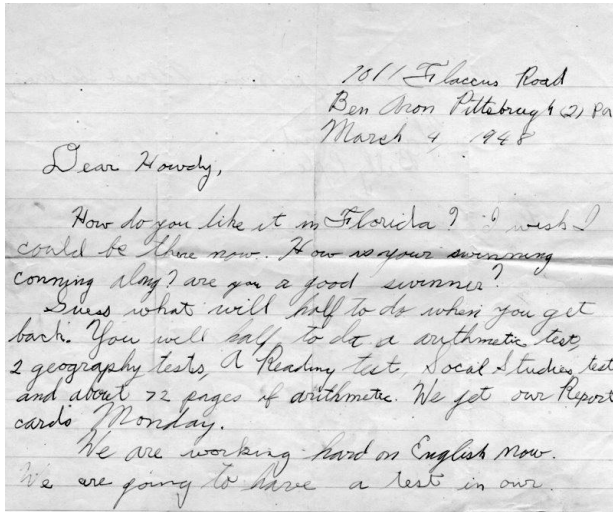 7011 Flaccus Road
Ben Avon Pittebrugh (2) Pa
March 4, 1948
Dear Howdy,
How do you like it in Florida? I wish I
could be there now. How is your swinning
conning along? are you a good swinner?
Guess what will half to do when you get
back. You will half to do a arithmetic test,
2 geography tests, A Reading test, Socal Studies test
and about 72 pages of arithmetic. We get our Report
cards Monday.
We are working hard on English now.
We are going to have a test in our